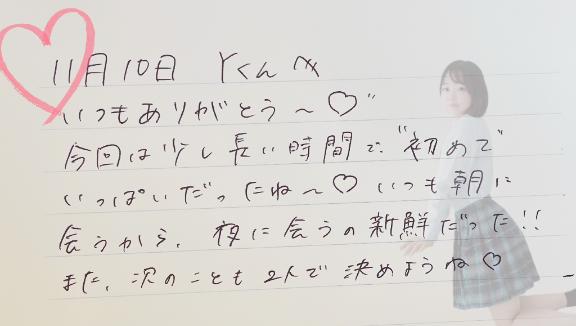 11月10日 Yくんへ
いつもありがとう〜♡"
今回は少し長い時間で"初めて"
いっぱいだったね〜♡ いつも朝に
会うから、夜に会うの新鮮だった!!
また、次のことも2人で決めようね♡